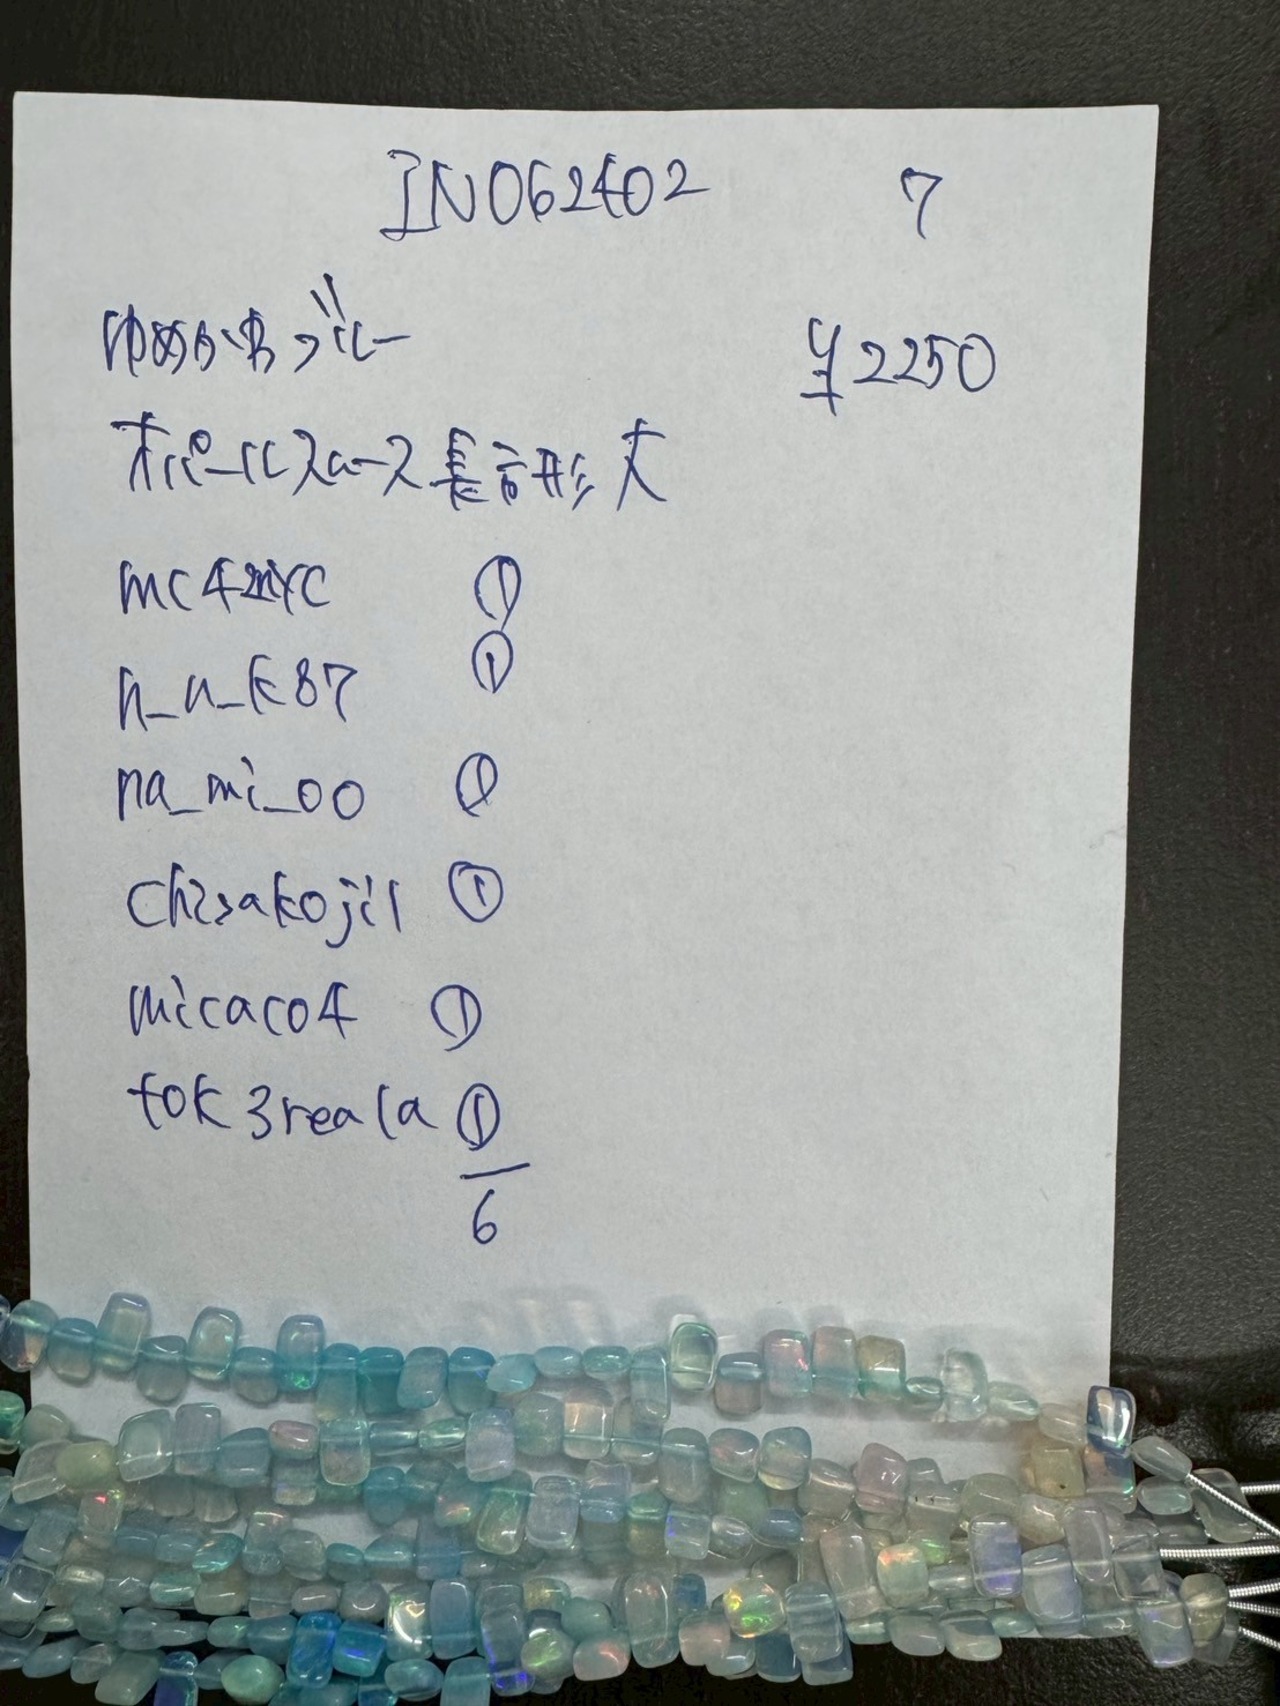 IN062402 7
ゆめかわブルー ¥2250
オパールスロース長方形大
mc4myc ①
n_u_k87 ①
na_mi_oo ①
chisakoji1 ①
micaco4 ①
tok3reala ①
6